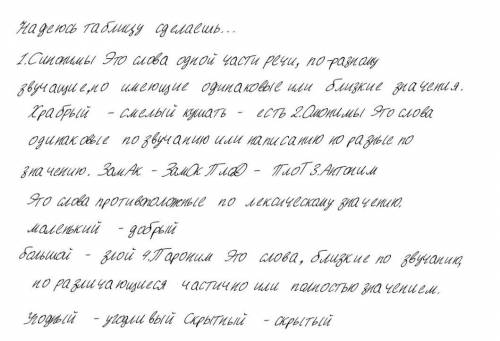 Надеюсь таблицу сделаешь...
1.Синонимы Это слова одной части речи, по-разному
звучащие, но имеющие одинаковые или близкие значения.
Храбрый - смелый кушать - есть 2.Омонимы Это слова
одинаковые по звучанию или написанию но разные по
значению. ЗамАк - ЗамОк ПлоД - ПлоТ 3.Антоним
Это слова противоположные по лексическому значению.
маленький - добрый
большой - злой 4.Пароним Это слова, близкие по звучанию,
но различающиеся частично или полностью значением.
Угодный - угодливый Скрытный - скрытый